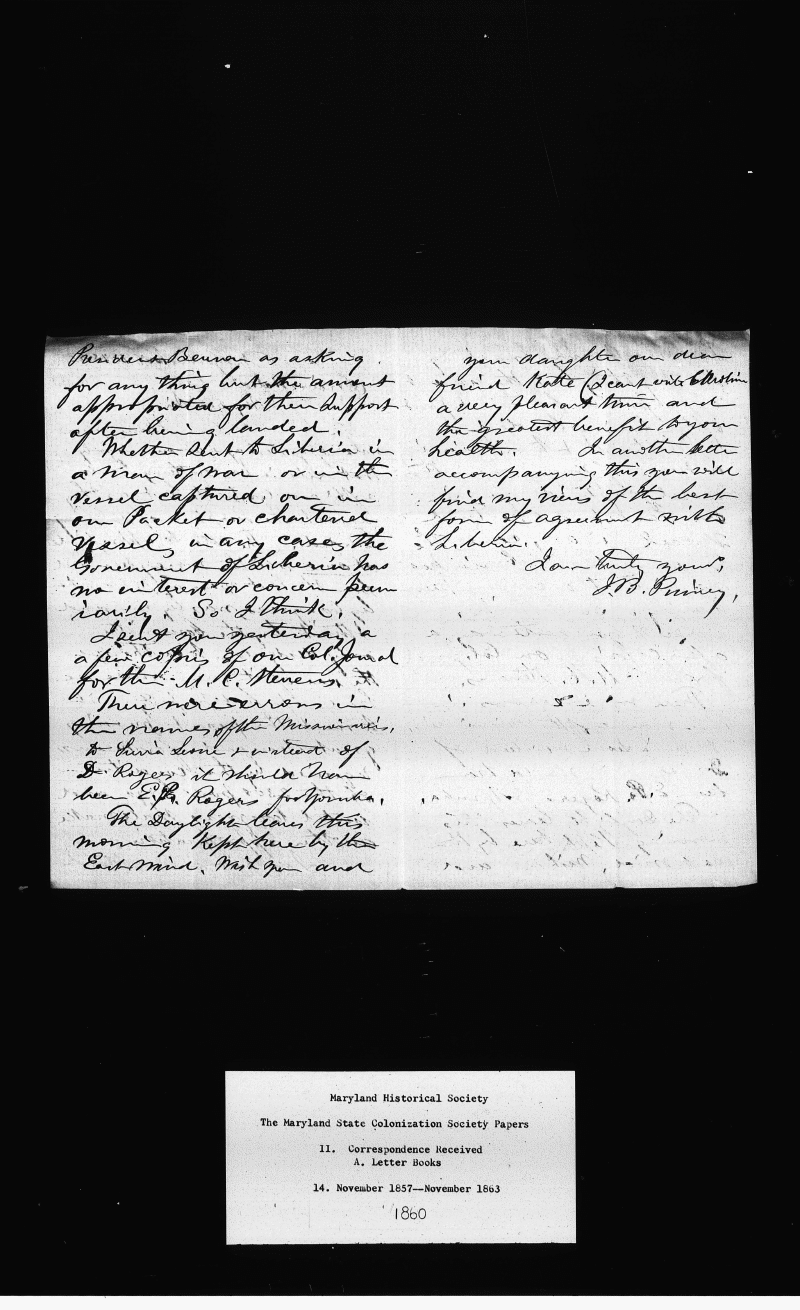 President Benson as asking
for any thing but the amount
appropriated for their support
after being landed.
Whether sent to Liberia in
a man of war or in the
vessel captured or in
our Packet or chartered
vessel, in any case, the
Government of Liberia has
no interest or concern pecun
iarily. So I think.
I sent you yesterday a
a few copies of our Col. Journal
for the M. C. Stevens.
There were errors in
the names of the Missionaries,
to Sierra Leone & instead of
D Rogers it should have
been E. P. Rogers for Yoruba.
The Daylight leaves this
morning Kept here by the
East Wind. Wish you and
your daughter our dear
friend Kate (I cant write
a very pleasant time and
the greatest benefit to your
health. In another letter
accompanying this you will
find my views of the best
form of agreement with
Liberia.
I am Truly yours,
J. B. Pinney,
Maryland Historical Society
The Maryland State Colonization Society Papers
11. Correspondence Received
A. Letter Books
14. November 1857--November 1863
1860